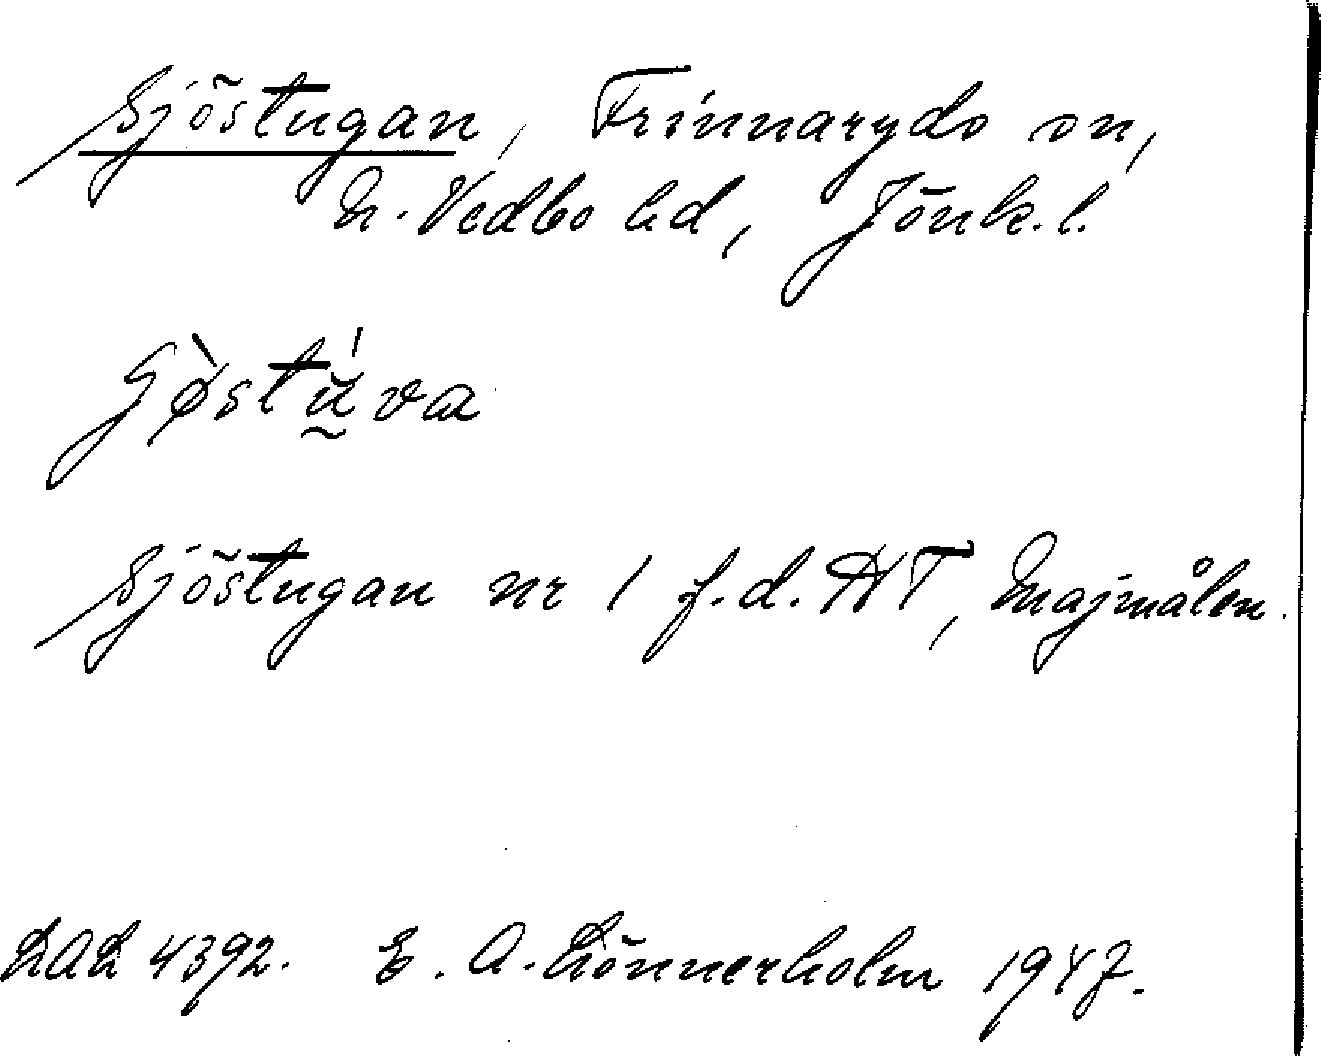 Sjöstugan, Frinnaryds sn,
N. Vedbo hd, Jönk. l.
Sjöstugan nr 1 f.d. AT, Majmålen.
LAL 4392. E. A. Lönnerholm 1947.